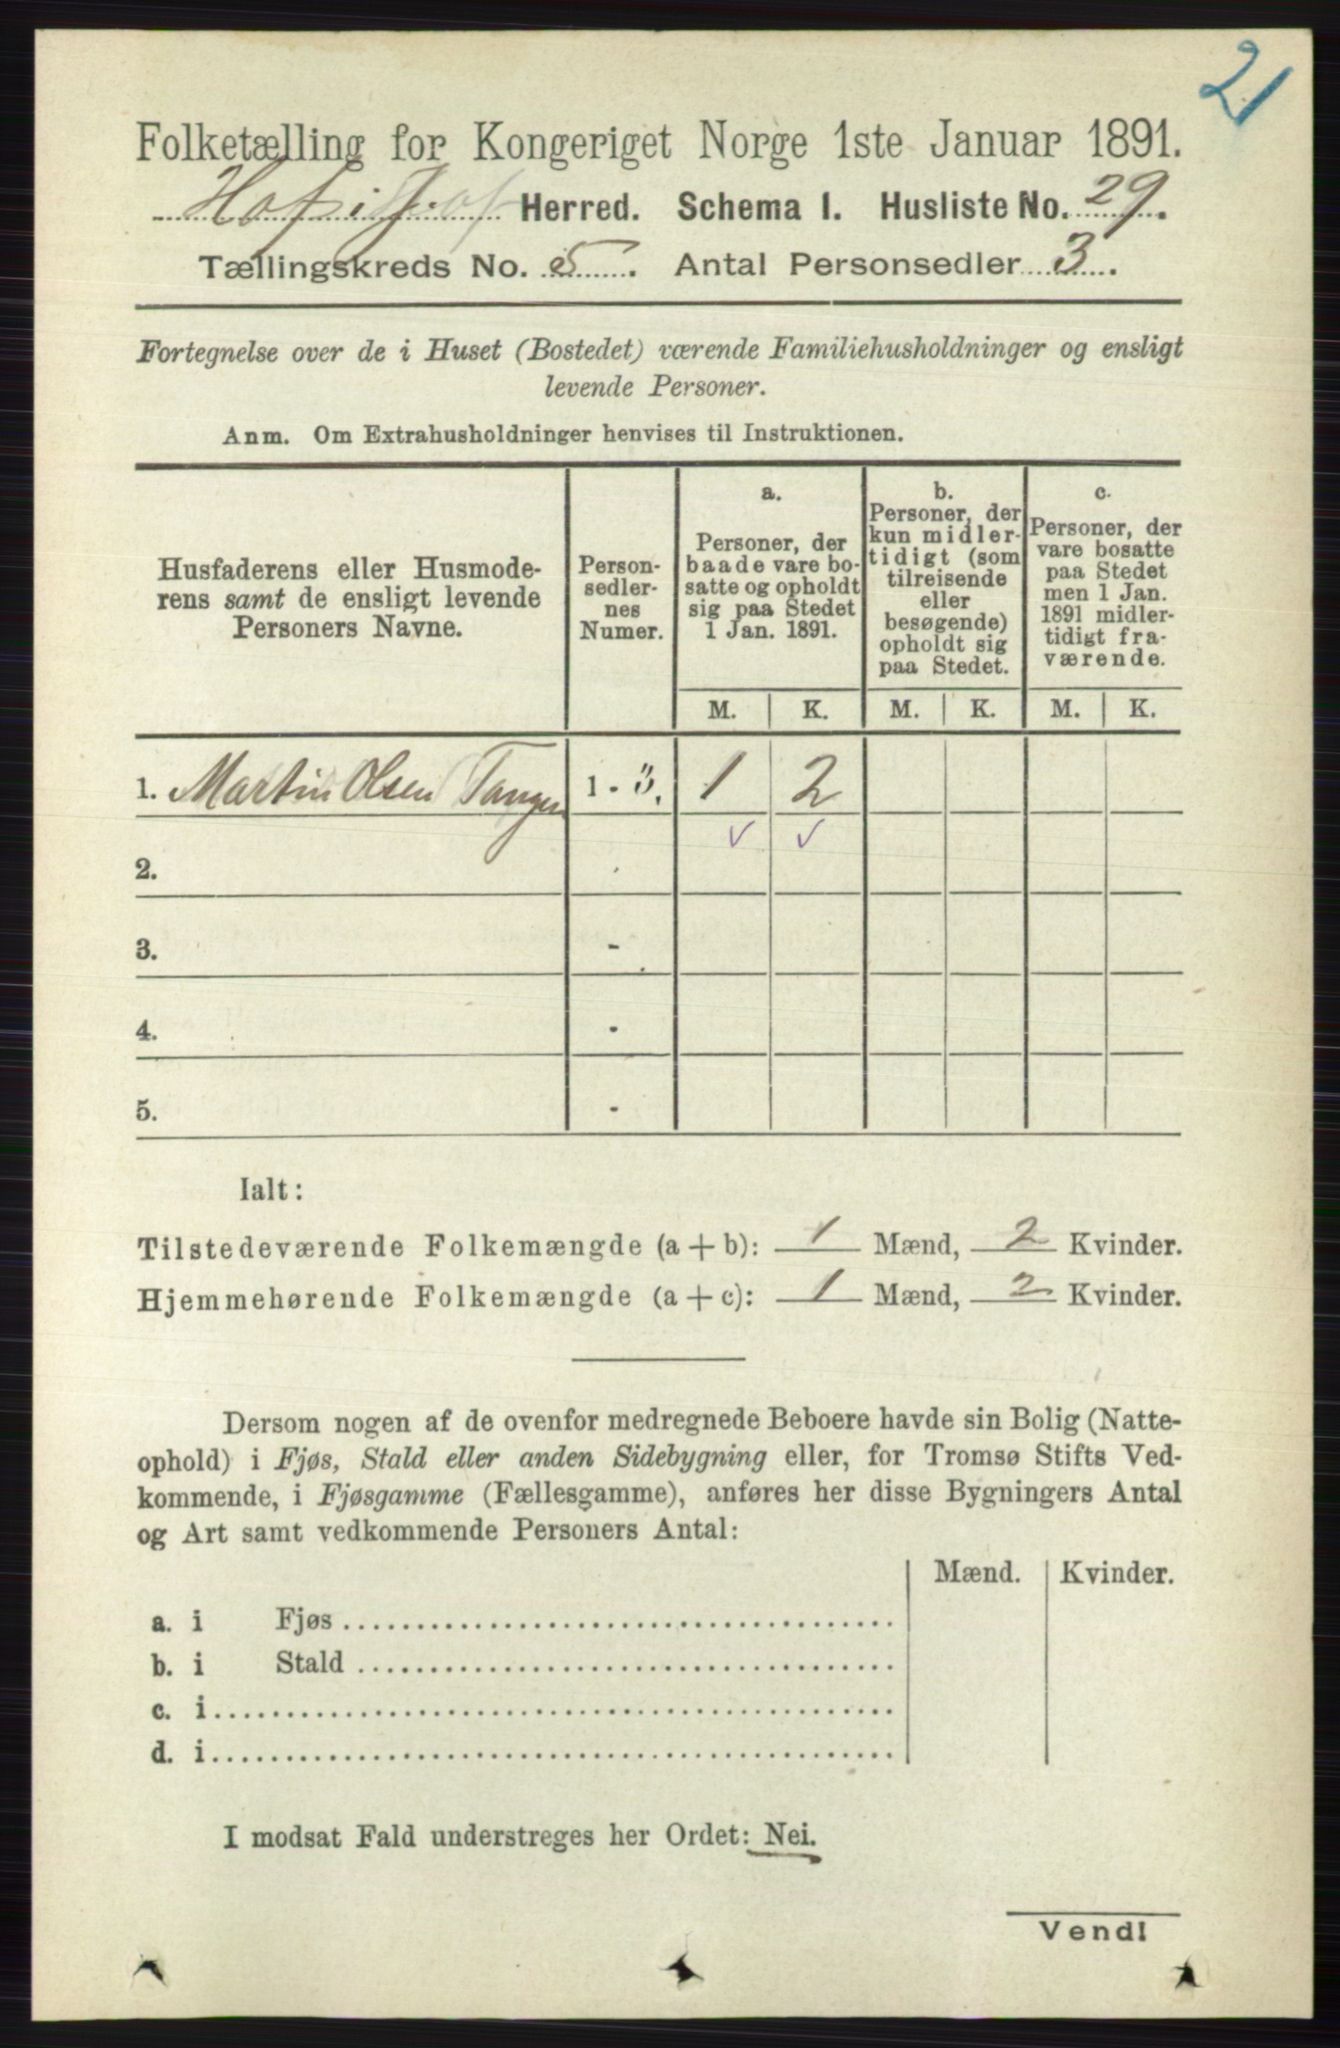 21
Folketælling for Kongeriget Norge 1ste Januar 1891.
Hof i J. Herred. Schema I. Husliste No. 29.
Tællingskreds No. 5. Antal Personsedler 3.
Fortegnelse over de i Huset (Bostedet) værende Familiehusholdninger og ensligt
levende Personer.
Anm. Om Extrahusholdninger henvises til Instruktionen.
Husfaderens eller Husmode-
rens samt de ensligt levende
Personers Navne.
Person-
sedler-
nes
Numer.
a.
Personer, der
baade vare bo-
satte og opholdt
sig paa Stedet
1 Jan. 1891.
b.
Personer, der
kun midler-
tidigt (som
tilreisende
eller
besøgende)
opholdt sig
paa Stedet.
c.
Personer, der
vare bosatte
paa Stedet
men 1 Jan.
1891 midler-
tidigt fra-
værende.
M. K. M. K. M. K.
1. Martin Olsen Tangen 1 - 3. 1 2
2.
3. -
4. -
5. -
Ialt:
Tilstedeværende Folkemængde (a + b): 1 Mænd, 2 Kvinder.
Hjemmehørende Folkemængde (a + c): 1 Mænd, 2 Kvinder.
Dersom nogen af de ovenfor medregnede Beboere havde sin Bolig (Natte-
ophold) i Fjøs, Stald eller anden Sidebygning eller, for Tromsø Stifts Ved-
kommende, i Fjøsgamme (Fællesgamme), anføres her disse Bygningers Antal
og Art samt vedkommende Personers Antal:
Mænd. Kvinder.
a. i Fjøs
b. i Stald
c. i
d. i
I modsat Fald understreges her Ordet: Nei.
Vend!